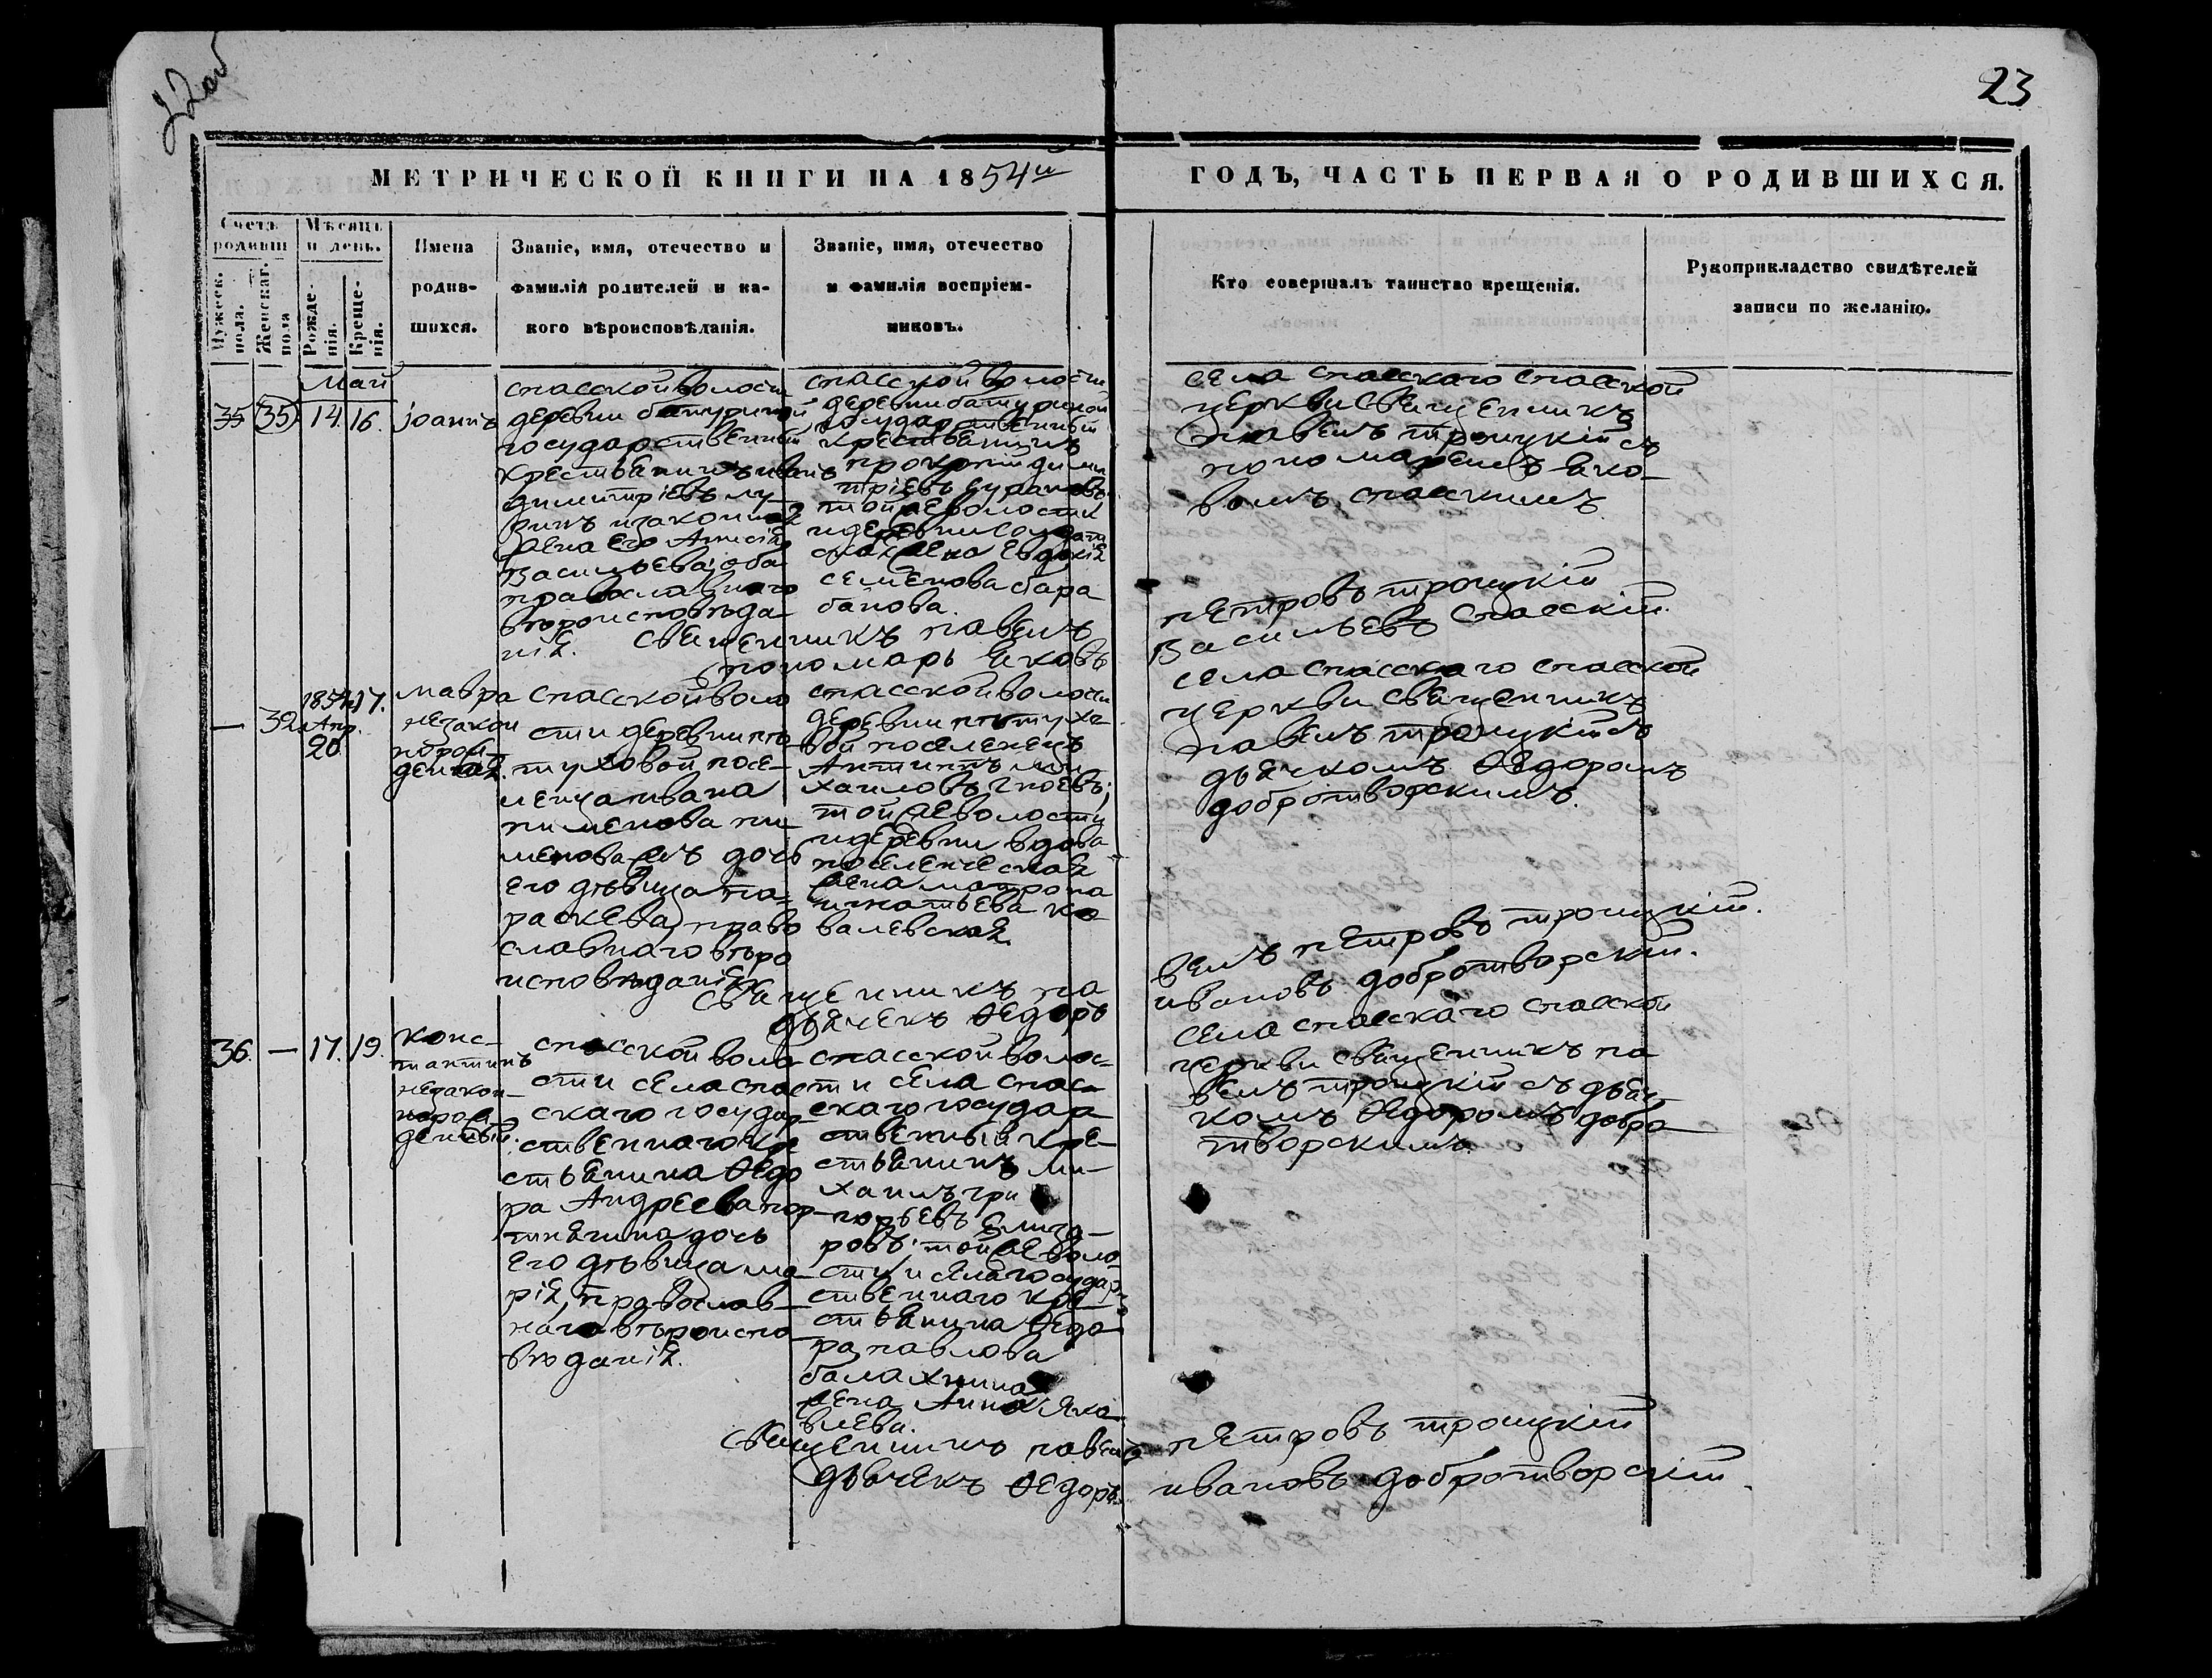 22 об
23
МЕТРИЧЕСКОЙ КНИГИ НА 1854й
ГОДЪ, ЧАСТЬ ПЕРВАЯ О РОДИВШИХСЯ.
Счетъ родивш
Мужеск. пола.
Женскаг. пола
Мѣсяцъ и день.
Рожде-
нія.
Креще-
нія.
Имена
родив-
шихся.
Званіе, имя, отечество и
фамилія родителей и ка-
кого вѣроисповѣданія.
Званіе, имя, отечество
и фамилія воспріем-
никовъ.
Кто совершалъ таинство крещенія.
Рукоприкладство свидѣтелей
записи по желанію.
май
35 35 14. 16.
іоаннъ
спасской волости
деревни батуриной
государственный
крестьянинъ иванъ
димитріевъ лу-
зинъ и законная
жена его Анисія
васильева; оба
православнаго
вѣроисповѣда-
нія.
спасской волости
деревни батуриной
государственный
крестьянинъ
прокопій дими
тріевъ
тойже волости
и деревни солдат
ская жена Евдокія
семенова бара
банова.
села спасскаго спасской
церкви священникъ
павелъ троицкій съ
пономаремъ яко-
вомъ спасскимъ.
священникъ павелъ
петровъ троицкій
пономарь яковъ
васильевъ спасскій.
— 32
1854 17.
Апр.
20.
мавра
незакон
норож
денная.
спасской воло
сти деревни пѣ
туховой посе-
ленца ивана
пименова пи
менова жъ дочь
его дѣвица па-
раскева, право
славнаго вѣро
исповѣданія.
спасской волости
деревни пѣтухо
вой поселенецъ
Антипъ ми
хаиловъ гноевъ;
тойже волости
и деревни вдова
поселенческая
жена матрона
игнатьева ко-
валевская.
села спасскаго спасской
церкви священникъ
павелъ троицкій съ
дьячкомъ Ѳедоромъ
добротворскимъ.
священникъ па
велъ петровъ троицкій.
дьячекъ Ѳедоръ
ивановъ добротворскій.
36. — 17. 19.
конс-
тантинъ
незакон-
норож
денный.
спасской воло
сти села спас
скаго государ-
ственнаго кре
стьянина Ѳедо
ра Андреева пор-
тнягина дочь
его дѣвица ма-
рія, православ-
наго вѣроиспо
вѣданія.
спасской волос-
ти села спас-
скаго государ
ственный кре-
стьянинъ ми-
хаилъ гри
горьевъ елиза-
ровъ; тойже воло
сти и села государ
ственнаго кре-
стьянина Ѳедо
ра павлова
балахнина
жена Анна яко
влева.
села спасскаго спасской
церкви священникъ па
велъ троицкій съ дьяч
комъ Ѳедоромъ добро
творскимъ.
священникъ павелъ
петровъ троицкій
дьячекъ Ѳедоръ
ивановъ добротворскій.